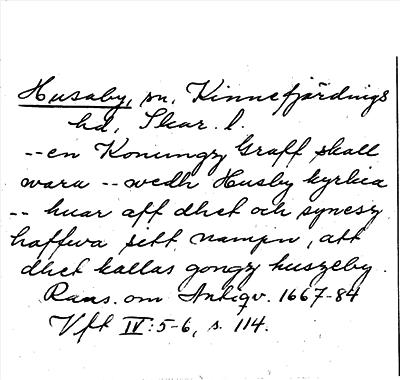 Husaby, sn, Kinnefjärdings
hd, Skar. l.
--en Konungz Graff skall
wara -- wedh Husby kyrkia
-- huar aff dhet och synesz
haffwa sitt nampn, att
dhet kallas gongz huszeby.
Rans. om Antiqv. 1667-84
Vft IV:5-6, s. 114.